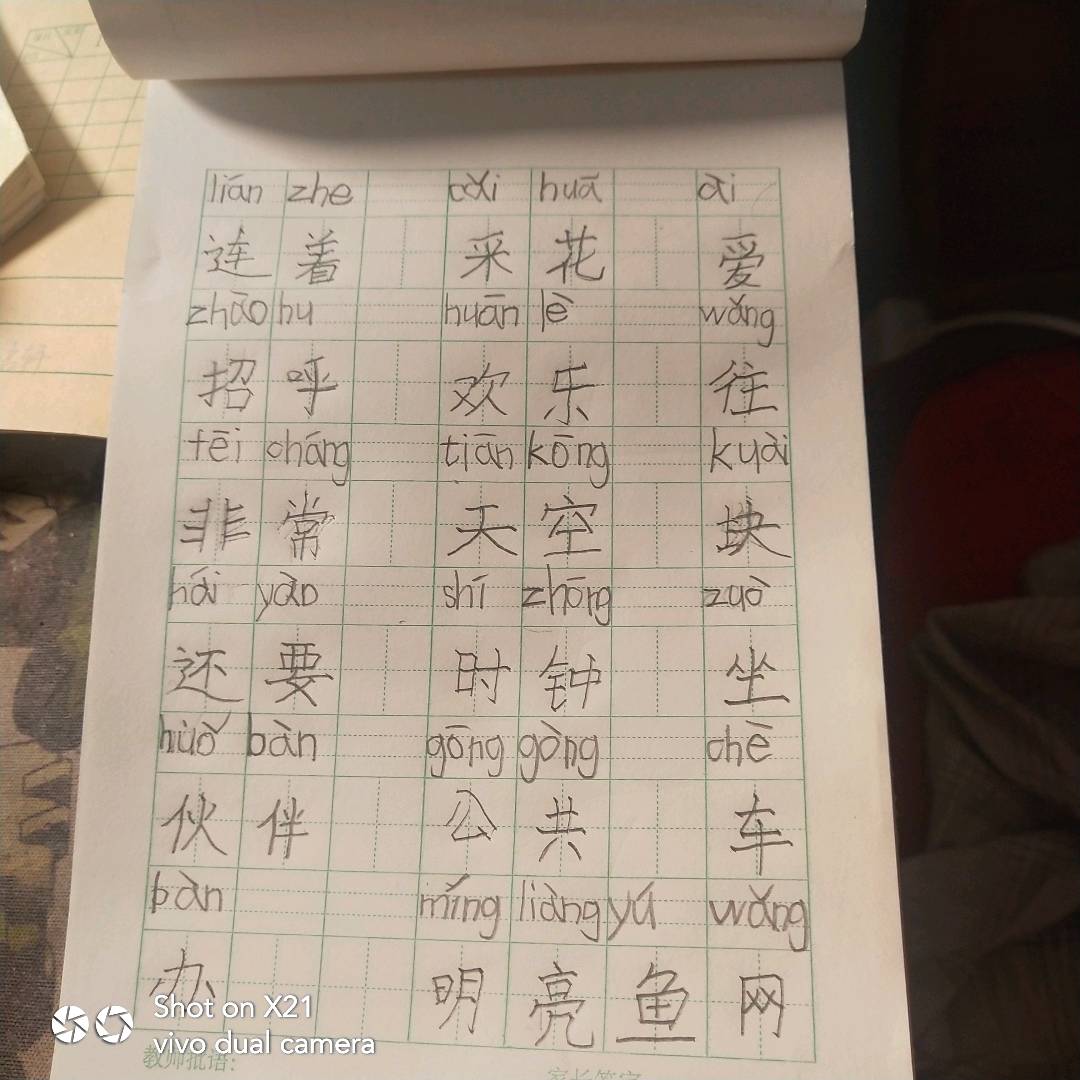 lián zhe cǎi huā ài
连 着 采 花 爱
zhāo hu huān lè wǎng
招 呼 欢 乐 往
fēi cháng tiān kōng kuài
非 常 天 空 块
hái yào shí zhōng zuò
还 要 时 钟 坐
huǒ bàn gōng gòng chē
伙 伴 公 共 车
bàn míng liàng yú wǎng
办 明 亮 鱼 网
Shot on X21
vivo dual camera
教师批语:
家长签字